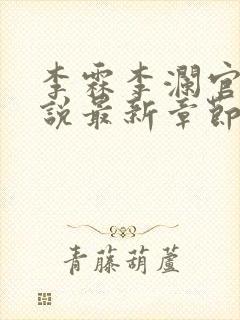 李霖李瀾官
說最新章節
青藤葫蘆